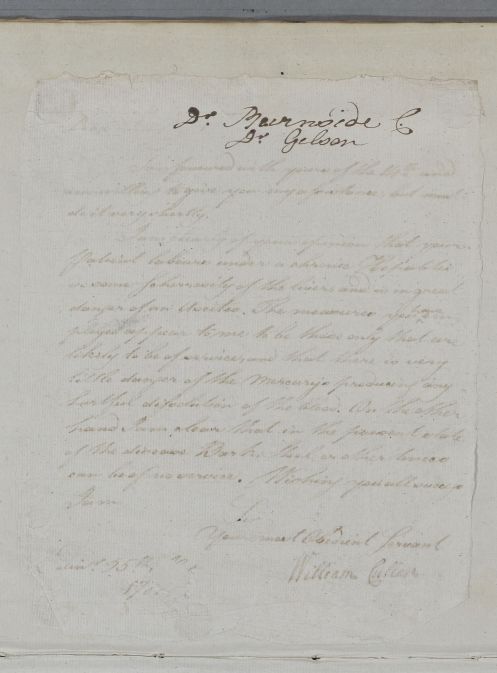 Dr. Burnside C.
Dr. Gelson
I am favoured with yours of the 14th and
am willing to give you my assistance, but must
do it very shortly.
I am clearly of your opinion that your
Patient labours under a chronic Hepatitis
or some Scherrosity of the liver and is in great
danger of an Ascites. The measures you em-
ployed appear to me to be those only that are
likely to be of service and that there is very
little danger of the Mercury's producing any
hurtful dissolution of the blood. On the other
hand I am clear that in the present state
of the disease Bark, that or other tonics
can be of no service. Wishing you all success
I am
Sir
Your most Obedient Servant
William Cullen
15th